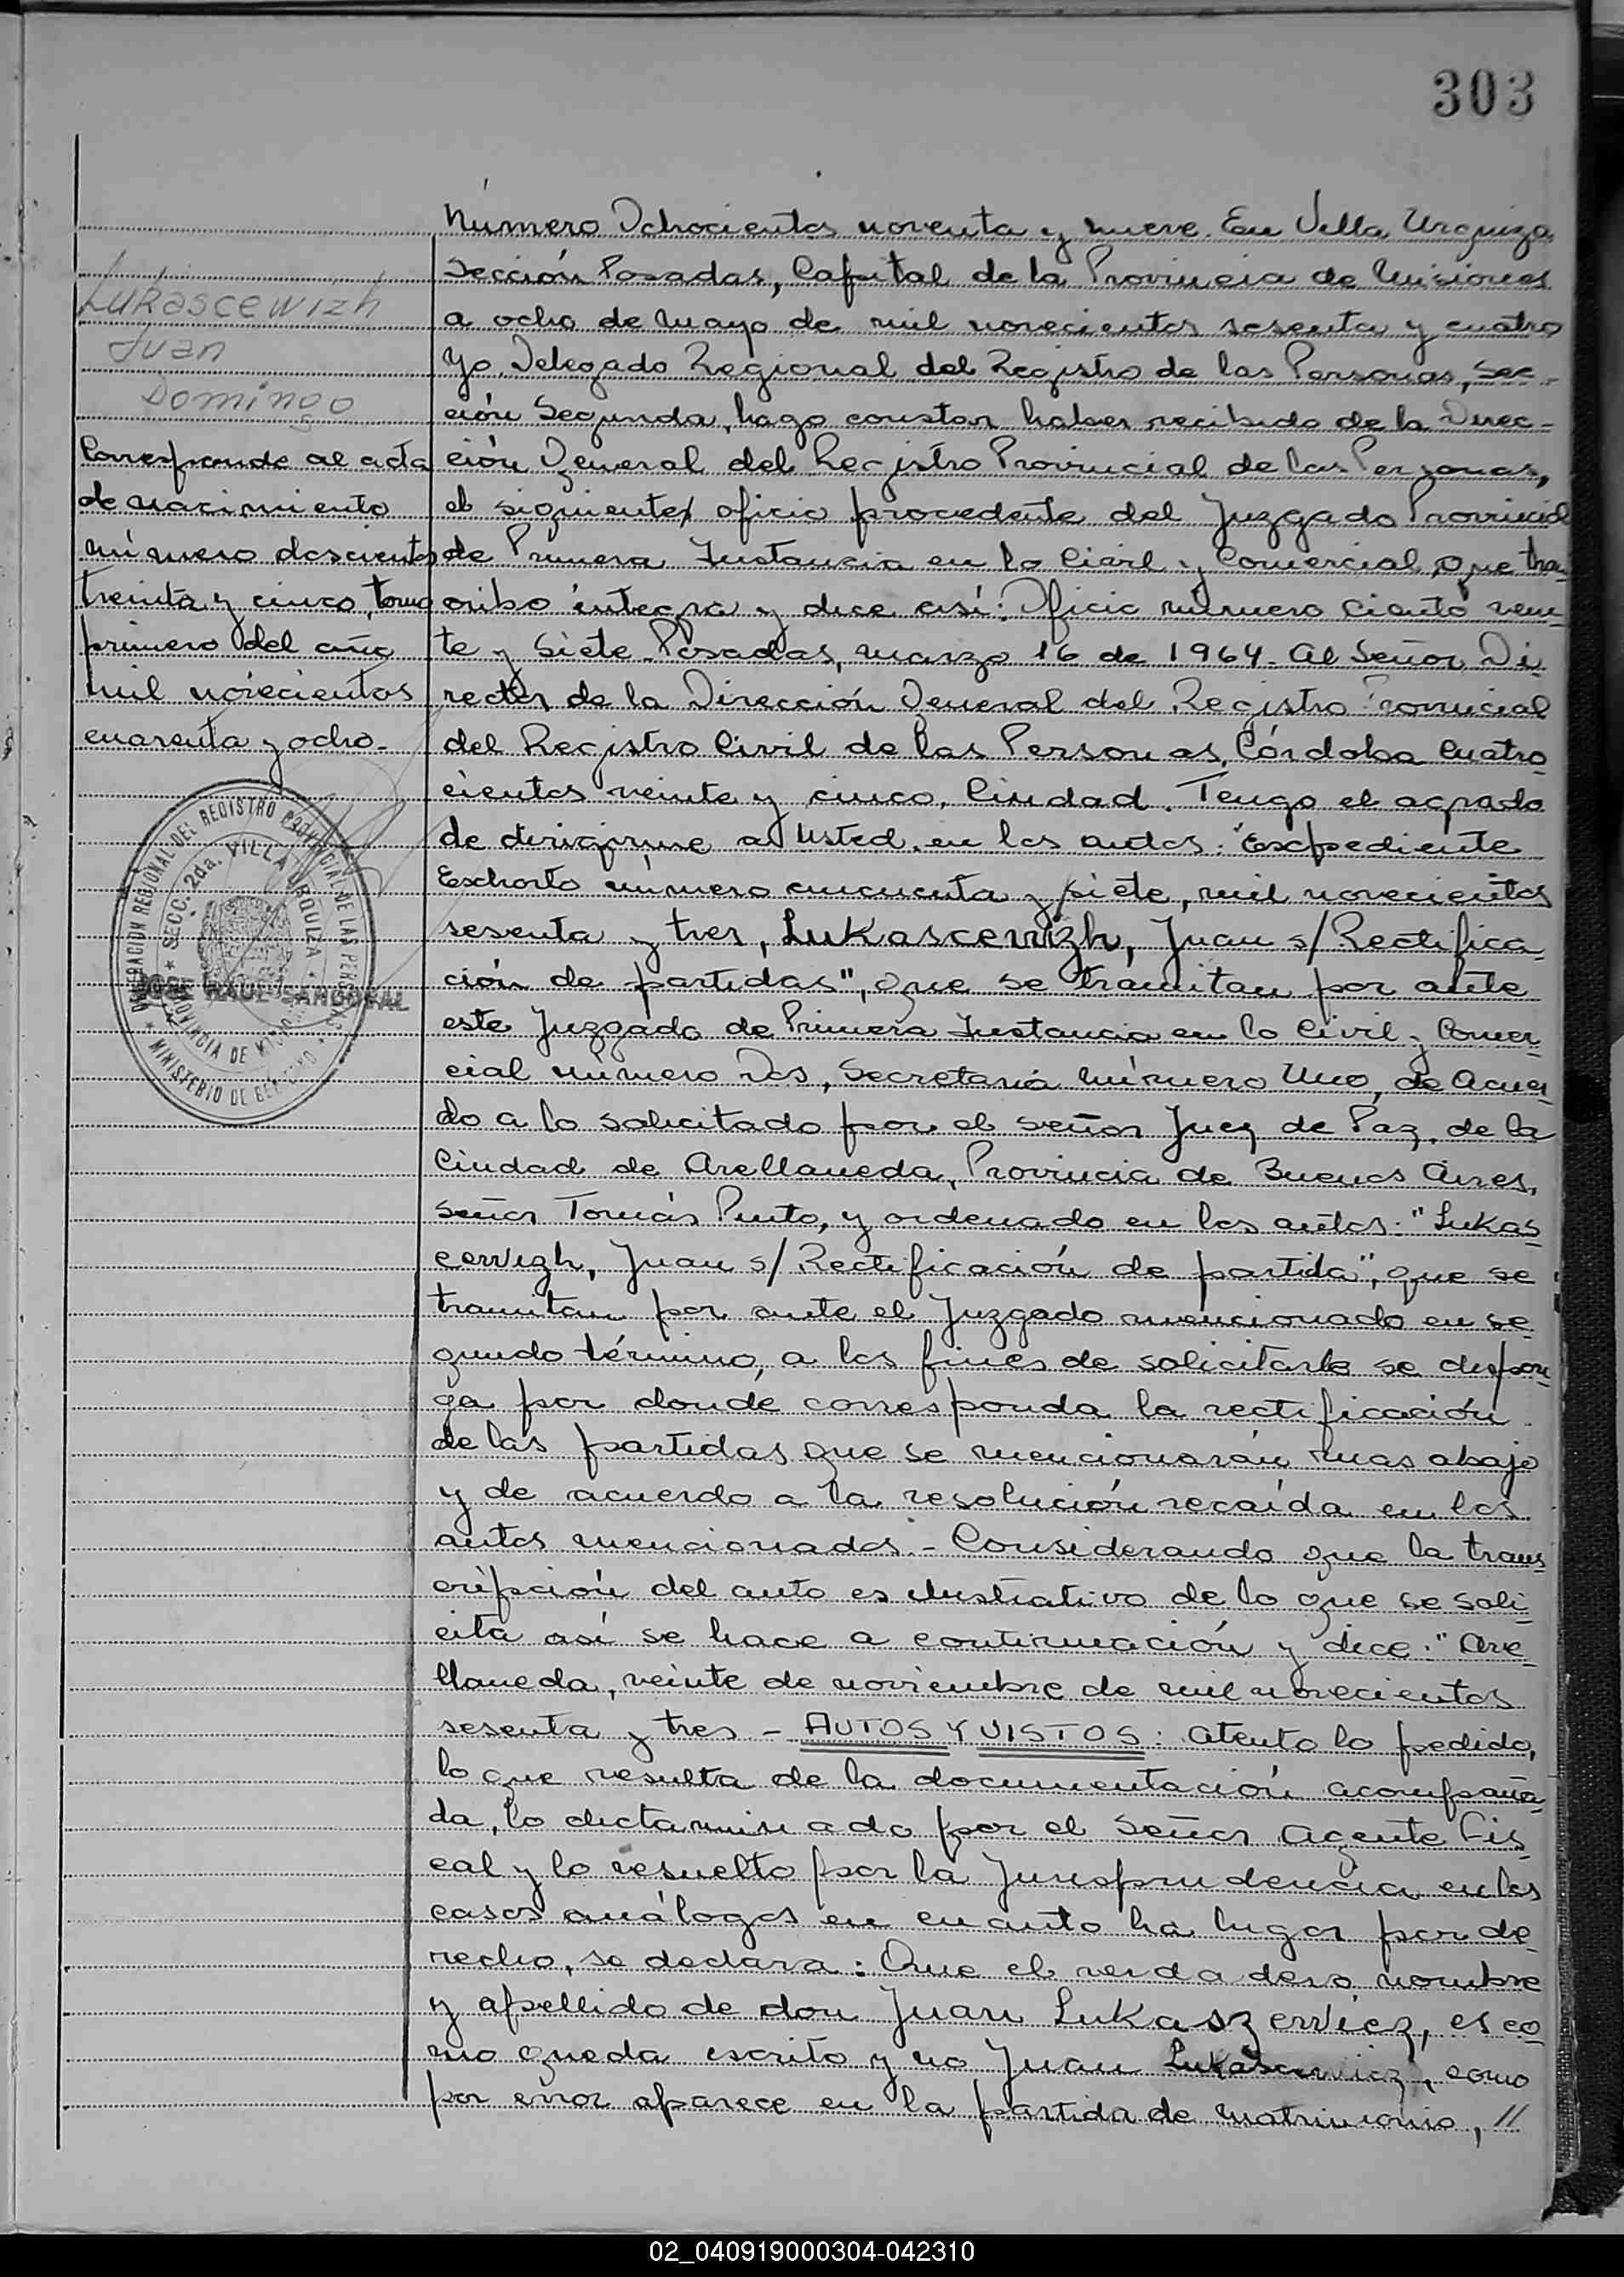 303
Lukascewizh
Juan
Domingo
Corresponde al acta
de nacimiento
número doscientos
treinta y cinco, tomo
primero del año
mil novecientos
cuarenta y ocho-
DELEGACION REGIONAL DEL REGISTRO PROVINCIAL DE LAS PERSONAS
* SECC. 2da. VILLA URQUIZA *
PROVINCIA DE MISIONES
* MINISTERIO DE GOBIERNO *
JOSE RAUL SANDOVAL
Número Ochocientos noventa y nueve. En Villa Urquiza
Sección Posadas, Capital de la Provincia de Misiones
a ocho de Mayo de mil novecientos sesenta y cuatro
Yo, Delegado Regional del Registro de las Personas, Sec-
ción Segunda, hago constar haber recibido de la Direc-
ción General del Registro Provincial de las Personas,
el siguiente oficio procedente del Juzgado Provincial
de Primera Instancia en lo Civil y Comercial, que tran
cribo íntegra y dice así: Oficio número ciento vein-
te y siete. Posadas, marzo 16 de 1964. Al Señor Di
rector de la Dirección General del Registro Provincial
del Registro Civil de las Personas, Córdoba Cuatro
cientos veinte y cinco. Ciudad. Tengo el agrado
de dirigirme a Usted en los autos: "Expediente
Exhorto número cincuenta y siete, mil novecientos
sesenta y tres, Lukascewizh, Juan s/ Rectifica
ción de partidas", que se tramitan por ante
este Juzgado de Primera Instancia en lo Civil y Comer-
cial número Dos, Secretaría número Uno, de Acuer-
do a lo solicitado por el señor Juez de Paz, de la
Ciudad de Avellaneda, Provincia de Buenos Aires,
señor Tomás Pinto, y ordenado en los autos: "Lukas
cewizh, Juan s/ Rectificación de partida", que se
tramitan por ante el Juzgado mencionado en se
gundo término, a los fines de solicitarle se dispon
ga por donde corresponda la rectificación
de las partidas que se mencionarán mas abajo
y de acuerdo a la resolución recaída en los
autos mencionados.- Considerando que la trans
cripción del auto es ilustrativo de lo que se soli
cita así se hace a continuación y dice: "Ave
llaneda, veinte de noviembre de mil novecientos
sesenta y tres - AUTOS Y VISTOS: atento lo pedido,
lo que resulta de la documentación acompaña
da, lo dictaminado por el Señor Agente Fis
cal y lo resuelto por la Jurisprudencia en los
casos análogos en cuanto ha lugar por de
recho, se declara: Que el verdadero nombre
y apellido de don Juan Lukaszewicz, es co
mo queda escrito y no Juan Lukascewicz, como
por error aparece en la partida de matrimonio, //
02_040919000304-042310